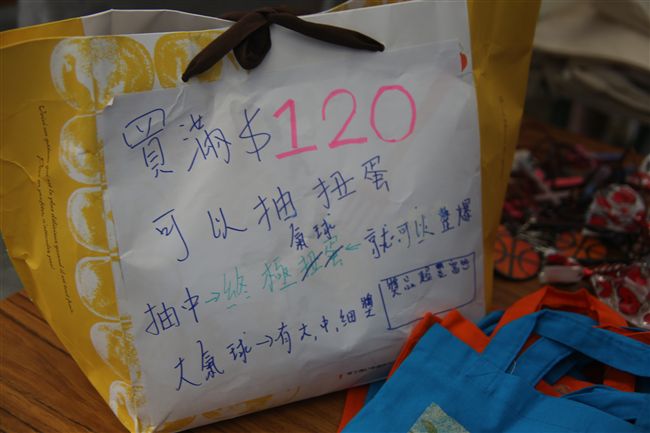 買滿$120
可以抽扭蛋
抽中→終極氣球←就可以登爆
大氣球→有大,中,細獎
獎品超豐富